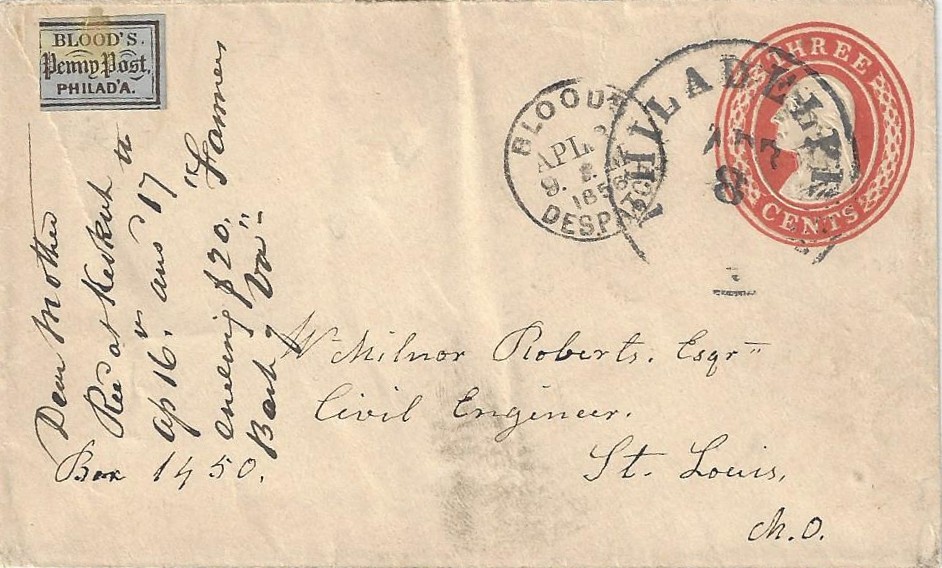 BLOOD'S
Penny Post,
PHILAD'A.
BLOOD'S
APL
9.
185
DESPATCH
PHILADELPHIA
APR
8
THREE
CENTS
Dear Mother
Rec'd at Keokuk
ap 16. ans 17
$20. "Farmers
Bank of
W Milnor Roberts. Esqr
Civil Engineer.
St. Louis,
Box 1450.
M.O.